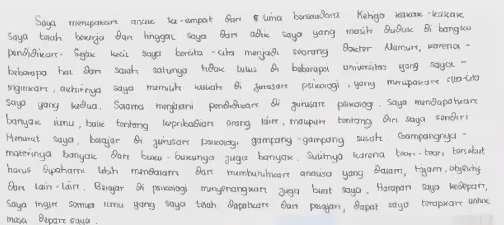 Saya merupakan anak ke-empat dari 5 lima bersaudara. Ketiga kakak-kakak
saya telah bekerja dan tinggal saya dan adik saya yang masih duduk di bangku
pendidikan. Sejak kecil saya bercita-cita menjadi seorang dokter. Namun, karena-
beberapa hal dan salah satunya tidak lulus di beberapa universitas yang saya-
inginkan, akhirnya saya memilih kuliah di jurusan psikologi, yang merupakan cita-cita
saya yang kedua. Selama menjalani pendidikan di jurusan psikologi. Saya mendapatkan
banyak ilmu, baik tentang kepribadian orang lain, maupun tentang diri saya sendiri
Menurut saya, belajar di jurusan psikologi gampang-gampang susah. Gampangnya-
materinya banyak dan buku-bukunya juga banyak. Sulitnya karena teori-teori tersebut
harus dipahami lebih mendalam dan membutuhkan analisa yang dalam, tajam, objektif
dan lain-lain. Belajar di psikologi menyenangkan juga buat saya. Harapan saya kedepan,
Saya ingin semua ilmu yang saya telah dapatkan dan pelajari, dapat saya terapkan untuk
masa depan saya.